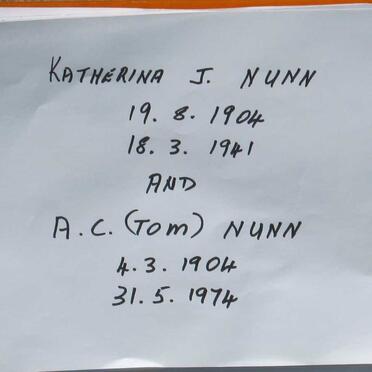 KATHERINA J. NUNN
19. 8. 1904
18. 3. 1941
AND
A.C. (TOM) NUNN
4.3. 1904
31. 5. 1974